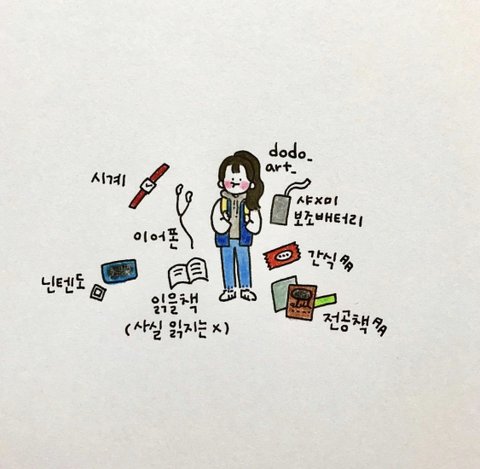 dodo_
art_
시계
샤x미
보조배터리
이어폰
간식 ㅆㅆ
닌텐도
읽을책
(사실 읽지는 x)
전공책 ㅆㅆ